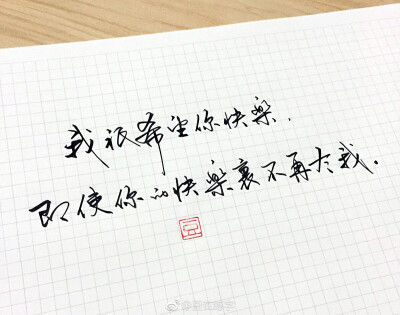 我很希望你快樂，
即使你的快樂裏不再有我。